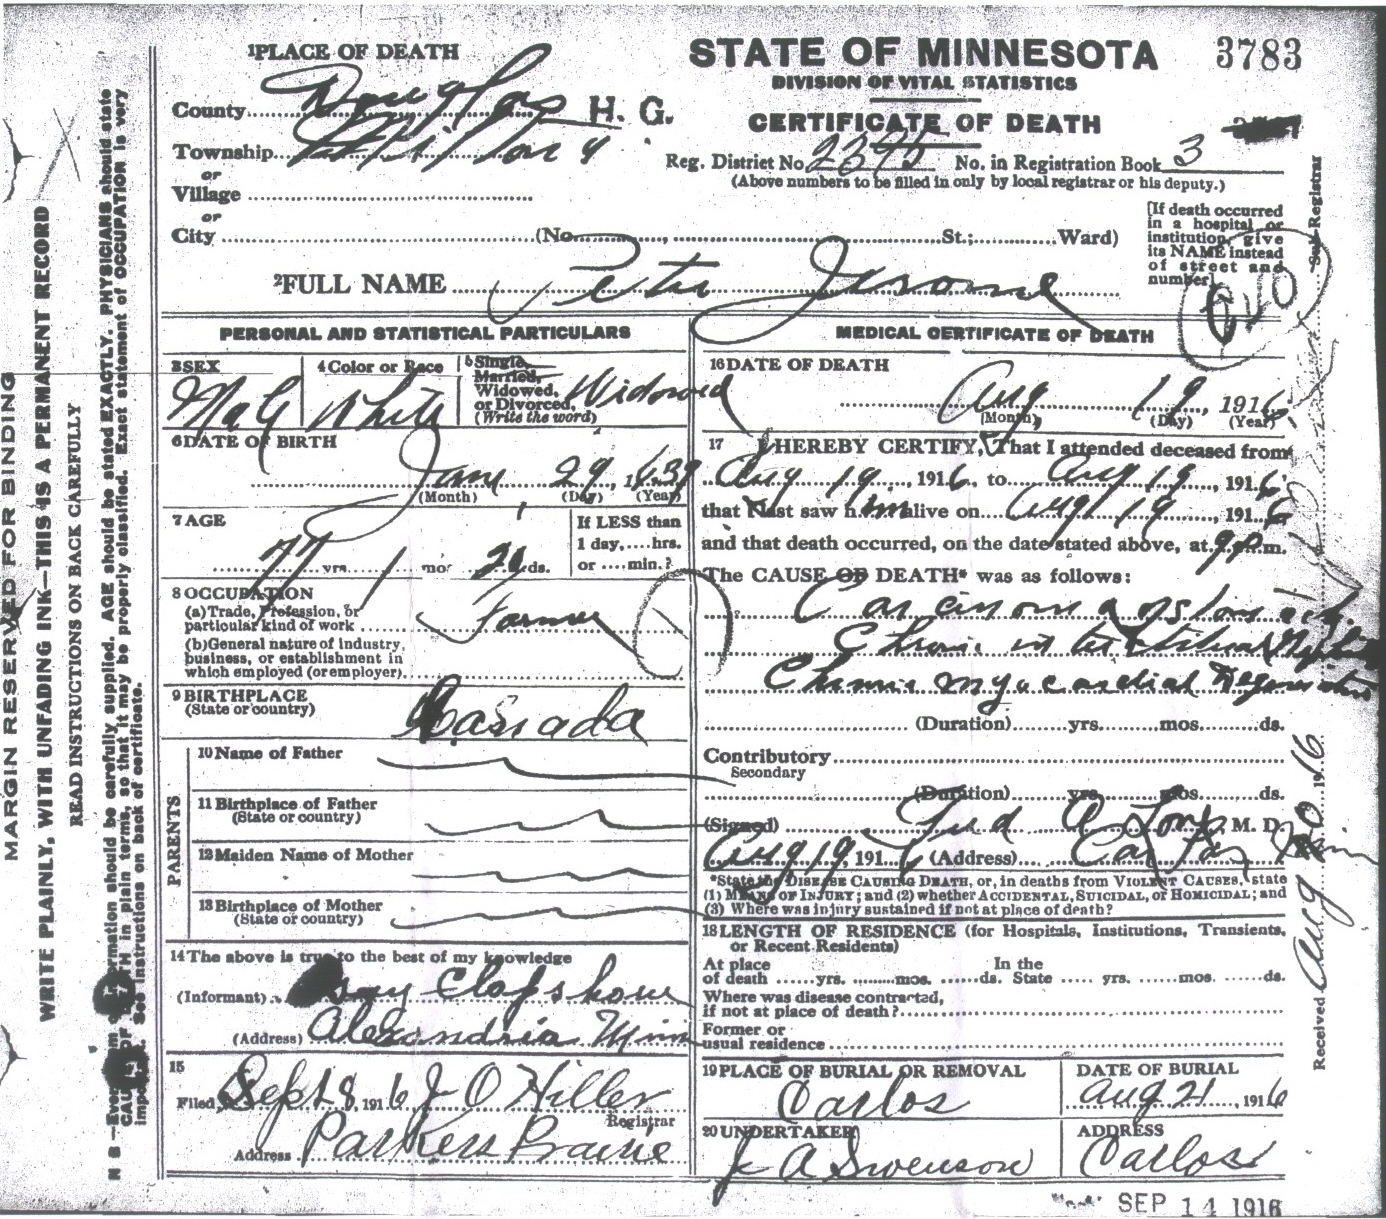 1 PLACE OF DEATH
STATE OF MINNESOTA 3783
DIVISION OF VITAL STATISTICS
CERTIFICATE OF DEATH
County Douglas H. G.
Township
or
Village
or
City (No. , St.; Ward)
Reg. District No. No. in Registration Book 3
(Above numbers to be filled in only by local registrar or his deputy.)
[If death occurred
in a hospital or
institution, give
its NAME instead
of street and
number]
Sub Registrar
2 FULL NAME Peter Jerome
PERSONAL AND STATISTICAL PARTICULARS
3 SEX
Male
4 Color or Race
White
5 Single,
Married,
Widowed,
or Divorced,
(Write the word)
Widowed
6 DATE OF BIRTH
June 29, 1839
(Month) (Day) (Year)
7 AGE
77 yrs. 1 mos ds.
If LESS than
1 day,....hrs.
or ....min.?
8 OCCUPATION
(a) Trade, Profession, or
particular kind of work Farmer
(b) General nature of industry,
business, or establishment in
which employed (or employer)
9 BIRTHPLACE
(State or country) Canada
PARENTS
10 Name of Father
11 Birthplace of Father
(State or country)
12 Maiden Name of Mother
13 Birthplace of Mother
(State or country)
14 The above is true to the best of my knowledge
(Informant)
(Address) Alexandria Minn
15
Filed Sept 8, 1916 J O Hiller
Registrar
Address Parkers Prairie
MEDICAL CERTIFICATE OF DEATH
16 DATE OF DEATH
Aug 19, 1916
(Month) (Day) (Year)
17 I HEREBY CERTIFY, That I attended deceased from
Aug 19, 1916, to Aug 19, 1916,
that I last saw him alive on Aug 19, 1916
and that death occurred, on the date stated above, at 9 p.m.
The CAUSE OF DEATH* was as follows:
Carcinoma of stomach
Chronic interstitial Nephritis
Chronic myocardial Degeneration
(Duration) yrs. mos. ds.
Contributory
Secondary
(Duration) yrs. mos. ds.
(Signed) M. D.
Aug 19, 1916 (Address)
*State the DISEASE CAUSING DEATH, or, in deaths from VIOLENT CAUSES, state
(1) MEANS OF INJURY; and (2) whether ACCIDENTAL, SUICIDAL, or HOMICIDAL; and
(3) Where was injury sustained if not at place of death?
18 LENGTH OF RESIDENCE (for Hospitals, Institutions, Transients,
or Recent Residents)
At place In the
of death ......yrs. ........mos. ......ds. State ......yrs. ......mos. ......ds.
Where was disease contracted,
if not at place of death?
Former or
usual residence
19 PLACE OF BURIAL OR REMOVAL
Carlos
DATE OF BURIAL
Aug 21, 1916
20 UNDERTAKER
J A Swenson
ADDRESS
Carlos
SEP 14 1916
Received Aug 1916
MARGIN RESERVED FOR BINDING
WRITE PLAINLY, WITH UNFADING INK—THIS IS A PERMANENT RECORD
READ INSTRUCTIONS ON BACK CAREFULLY
N B—Every item information should be carefully supplied. AGE should be stated EXACTLY. PHYSICIANS should state
CAUSE OF DEATH in plain terms, so that it may be properly classified. Exact statement of OCCUPATION is very
important. See instructions on back of certificate.